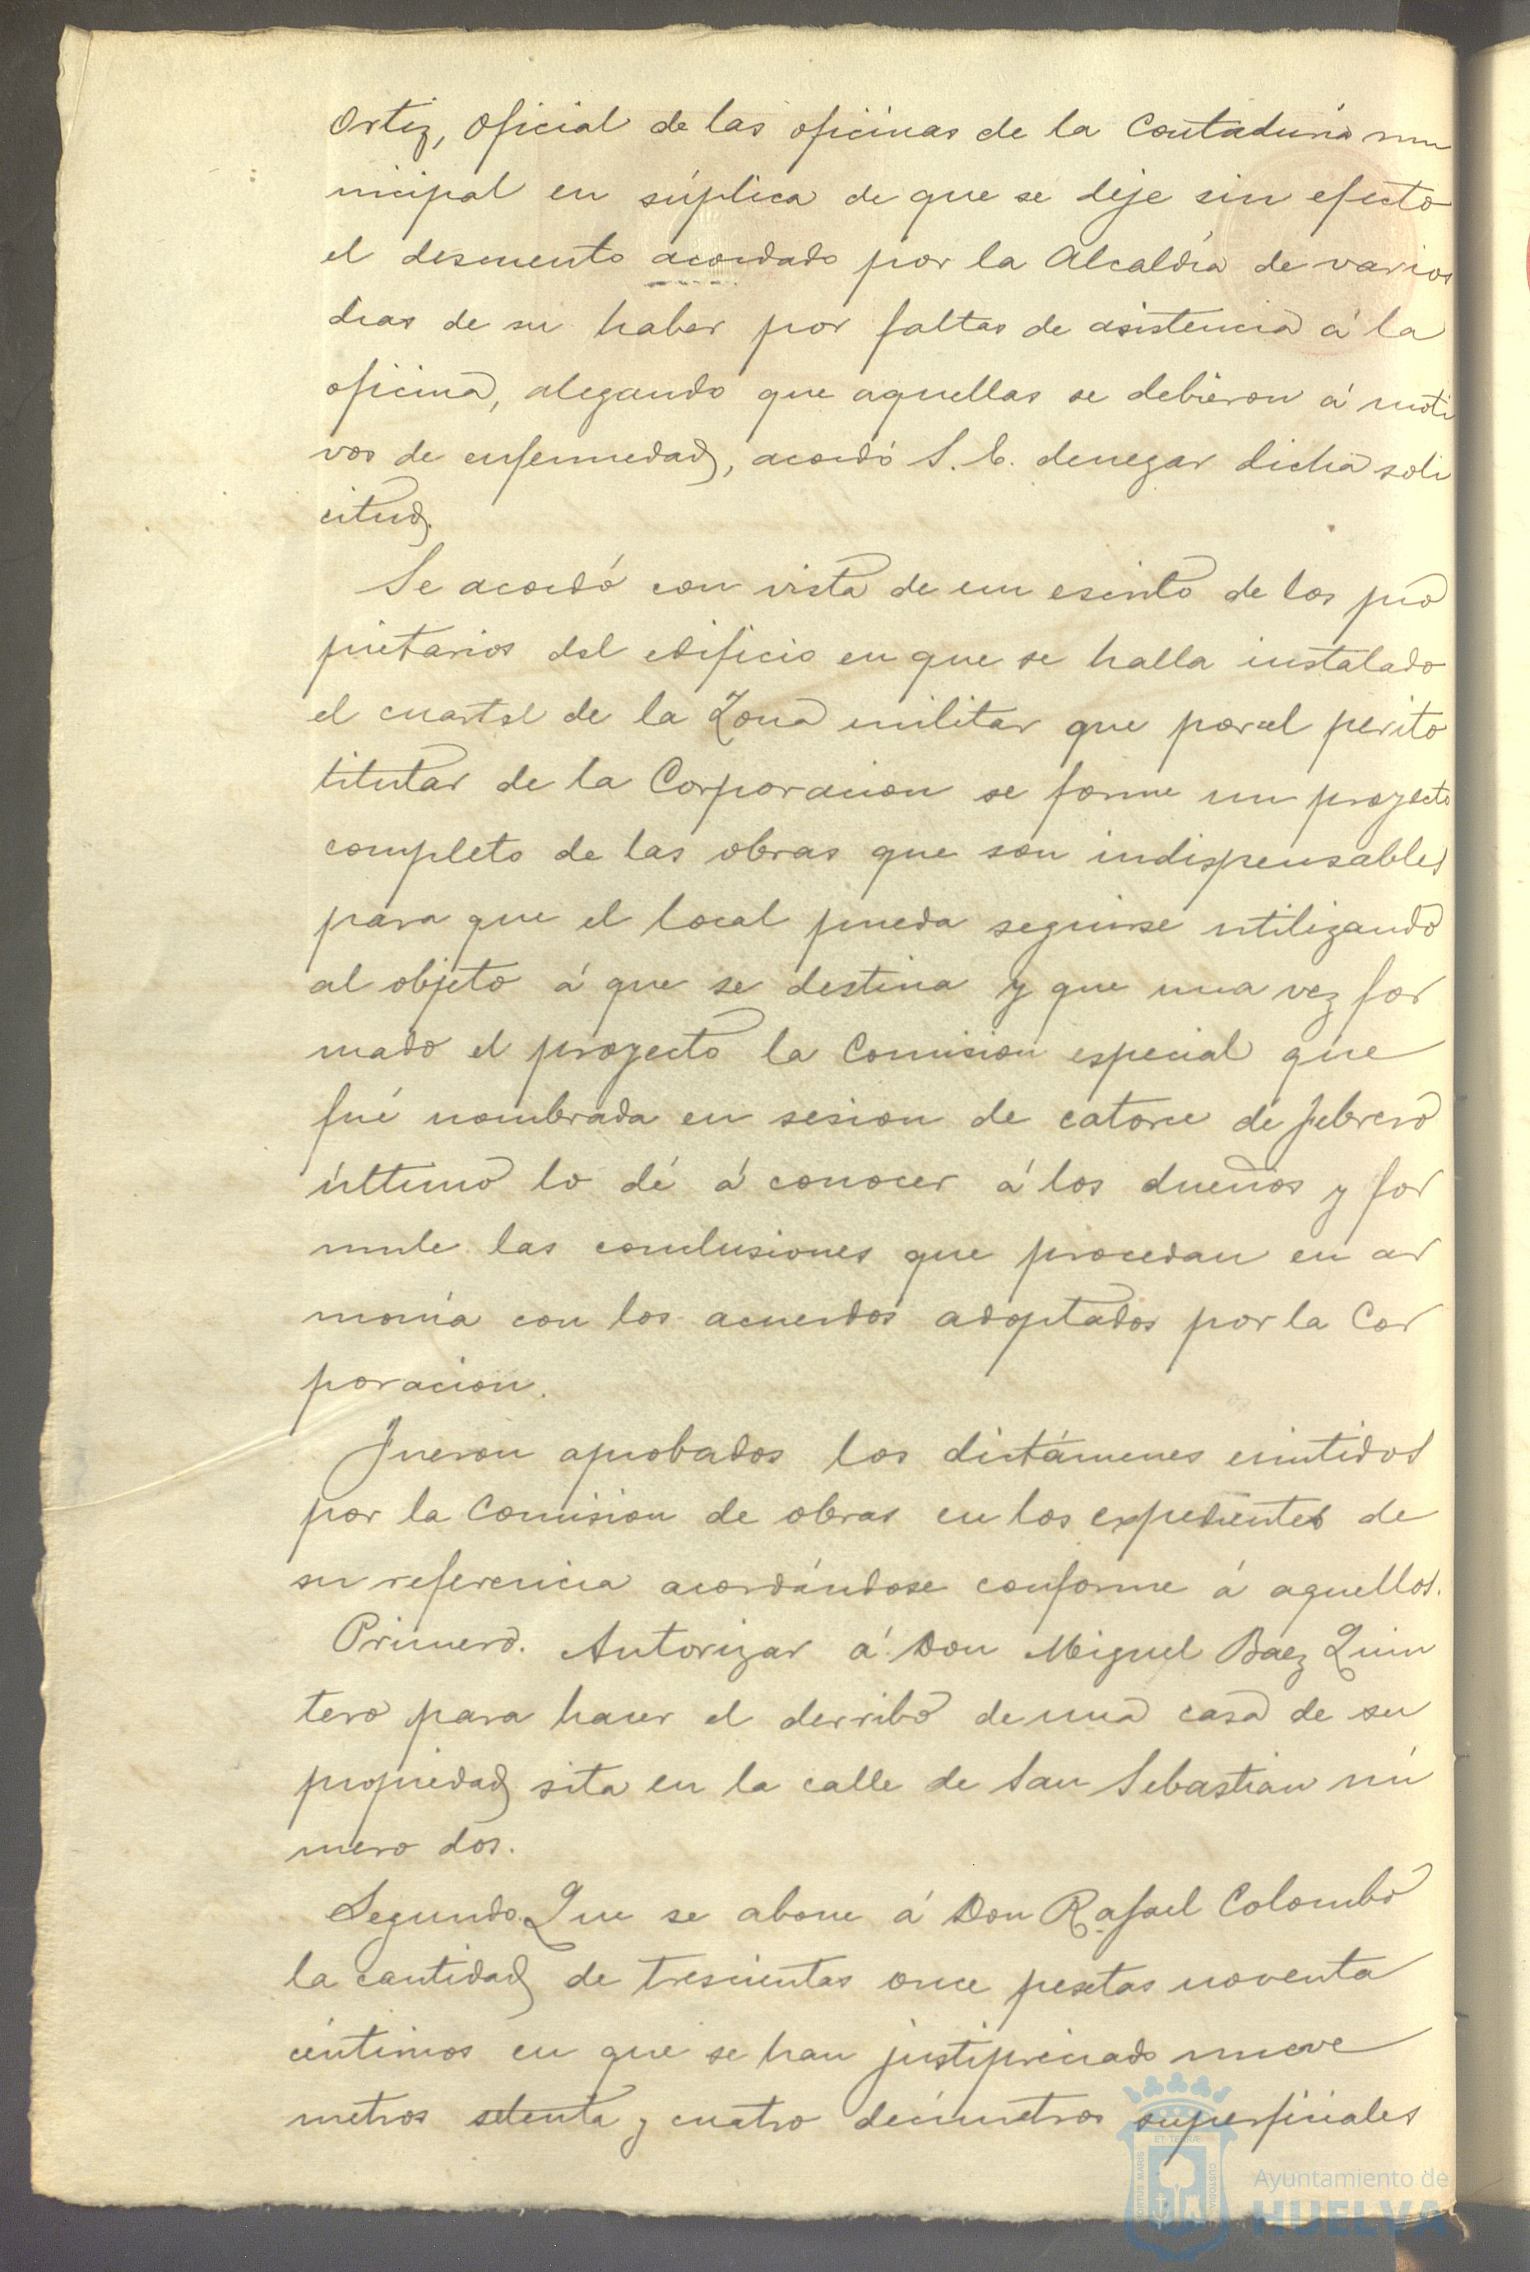 Ortiz, Oficial de las oficinas de la Contaduria mu
nicipal en súplica de que se deje sin efecto
el descuento acordado por la Alcaldia de varios
dias de su haber por faltas de asistencia á la
oficina, alegando que aquellas se debieron á moti
vos de enfermedad, acordó S. E. denegar dicha soli
citud.
Se acordó con vista de un escrito de los pro
pietarios del edificio en que se halla instalado
el cuartel de la Zona militar que por el perito
titular de la Corporacion se forme un proyecto
completo de las obras que son indispensables
para que el local pueda seguirse utilizando
al objeto á que se destina y que una vez for
mado el proyecto la Comision especial que
fué nombrada en sesion de catorce de Febrero
último lo dé á conocer á los dueños y for
mule las conclusiones que procedan en ar
monia con los acuerdos adoptados por la Cor
poracion.
Fueron aprobados los dictámenes emitidos
por la Comision de obras en los expedientes de
su referencia acordándose conforme á aquellos.
Primero. Autorizar á Don Miguel Baez Quin
tero para hacer el derribo de una casa de su
propiedad sita en la calle de San Sebastian nú
mero dos.
Segundo. Que se abone á Don Rafael Colombo
la cantidad de trescientas once pesetas noventa
céntimos en que se han justipreciado nueve
metros setenta y cuatro decimetros superficiales
PORTUS MARIS
ET TERRÆ
CUSTODIA
Ayuntamiento de
HUELVA